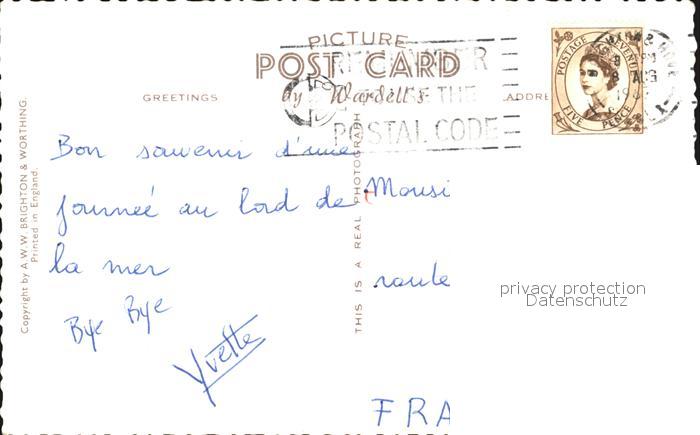 PICTURE
POST CARD
by Wardell's
GREETINGS
ADDRE
REMEMBER
THE
POSTAL CODE
POSTAGE REVENUE
FIVE PENCE
AUG
Bon souvenir d'une
journée au bord de
la mer
Bye Bye
Yvette
Monsi
route
FRA
THIS IS A REAL PHOTOGRAPH
Copyright by A.W.W. BRIGHTON & WORTHING.
Printed in England.
privacy protection
Datenschutz